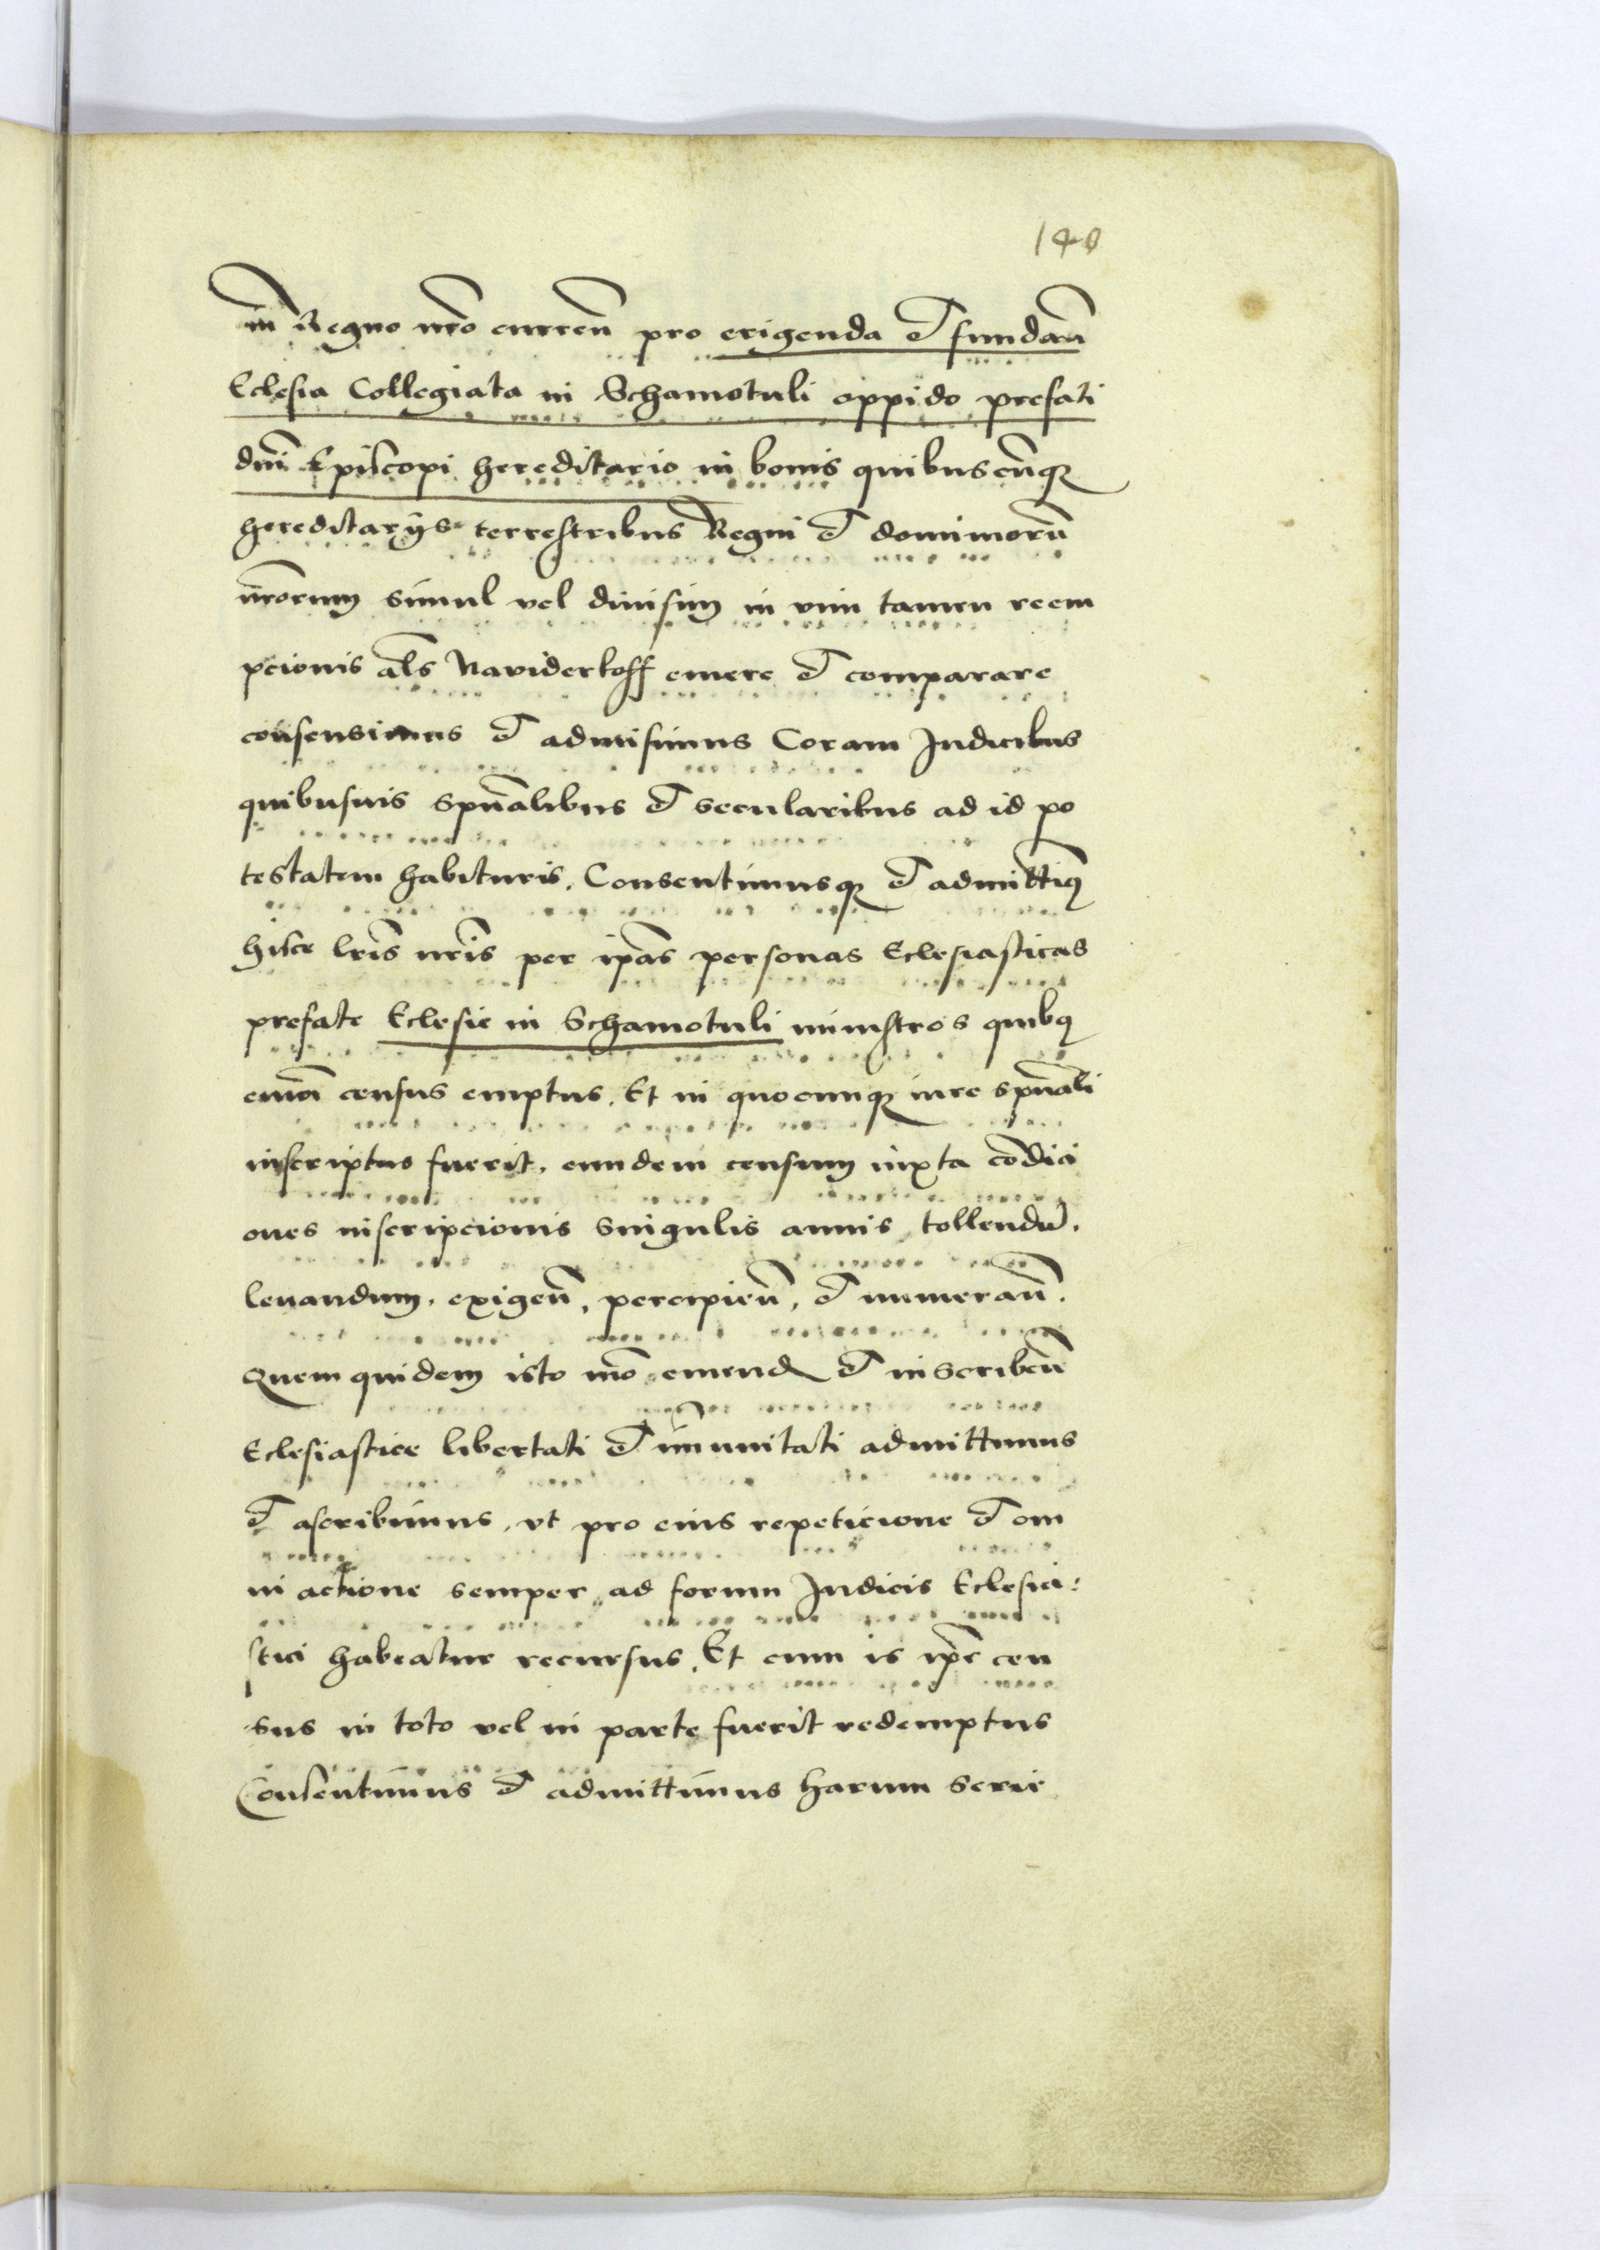 140
in Regno nrõ curreñ pro erigenda et fundañ
Eclesia Collegiata in Schamotuli oppido prefati
dñi Episcopi hereditario in bonis quibuscũqȝ
hereditarÿs terrestribus Regni et dominiorũ
nrõrum simul vel diuisim in vim tamen reem
pcionis als̃ Naviderkoff emere et comparare
consensimus et admisimus Coram Judicibus
quibusuis spũalibus et secularibus ad id po
testatem habituris. Consentimusqȝ et admittimꝯ
hisce lrĩs nrĩs per ipãs personas Eclesiasticas
prefate Eclesie in Schamotuli ministros quibꝯ
census emptus. Et in quocunqȝ iure spũali
inscriptus fuerit. eundem censum iuxta cõdici
ones inscripcionis singulis annis tollendũ.
leuandum. exigeñ, percipieñ, et numerañ.
Quem quidem isto mõ emend et inscribeñ
Eclesiastice libertati et im̃unitati admittimus
et ascribimus. vt pro eius repeticione et om
ni actione semper ad forum Judicis Eclesia:
stici habeatur recursus. Et cum is ipẽ cen
sus in toto vel in parte fuerit redemptus
Consentimus et admittimus harum serie